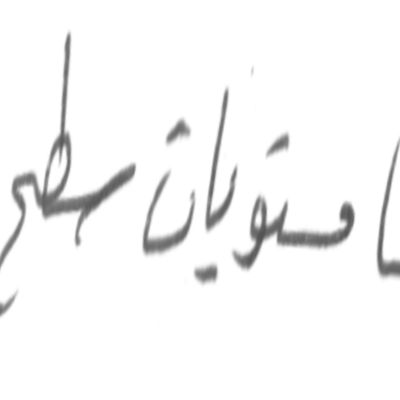 مستويات سطح